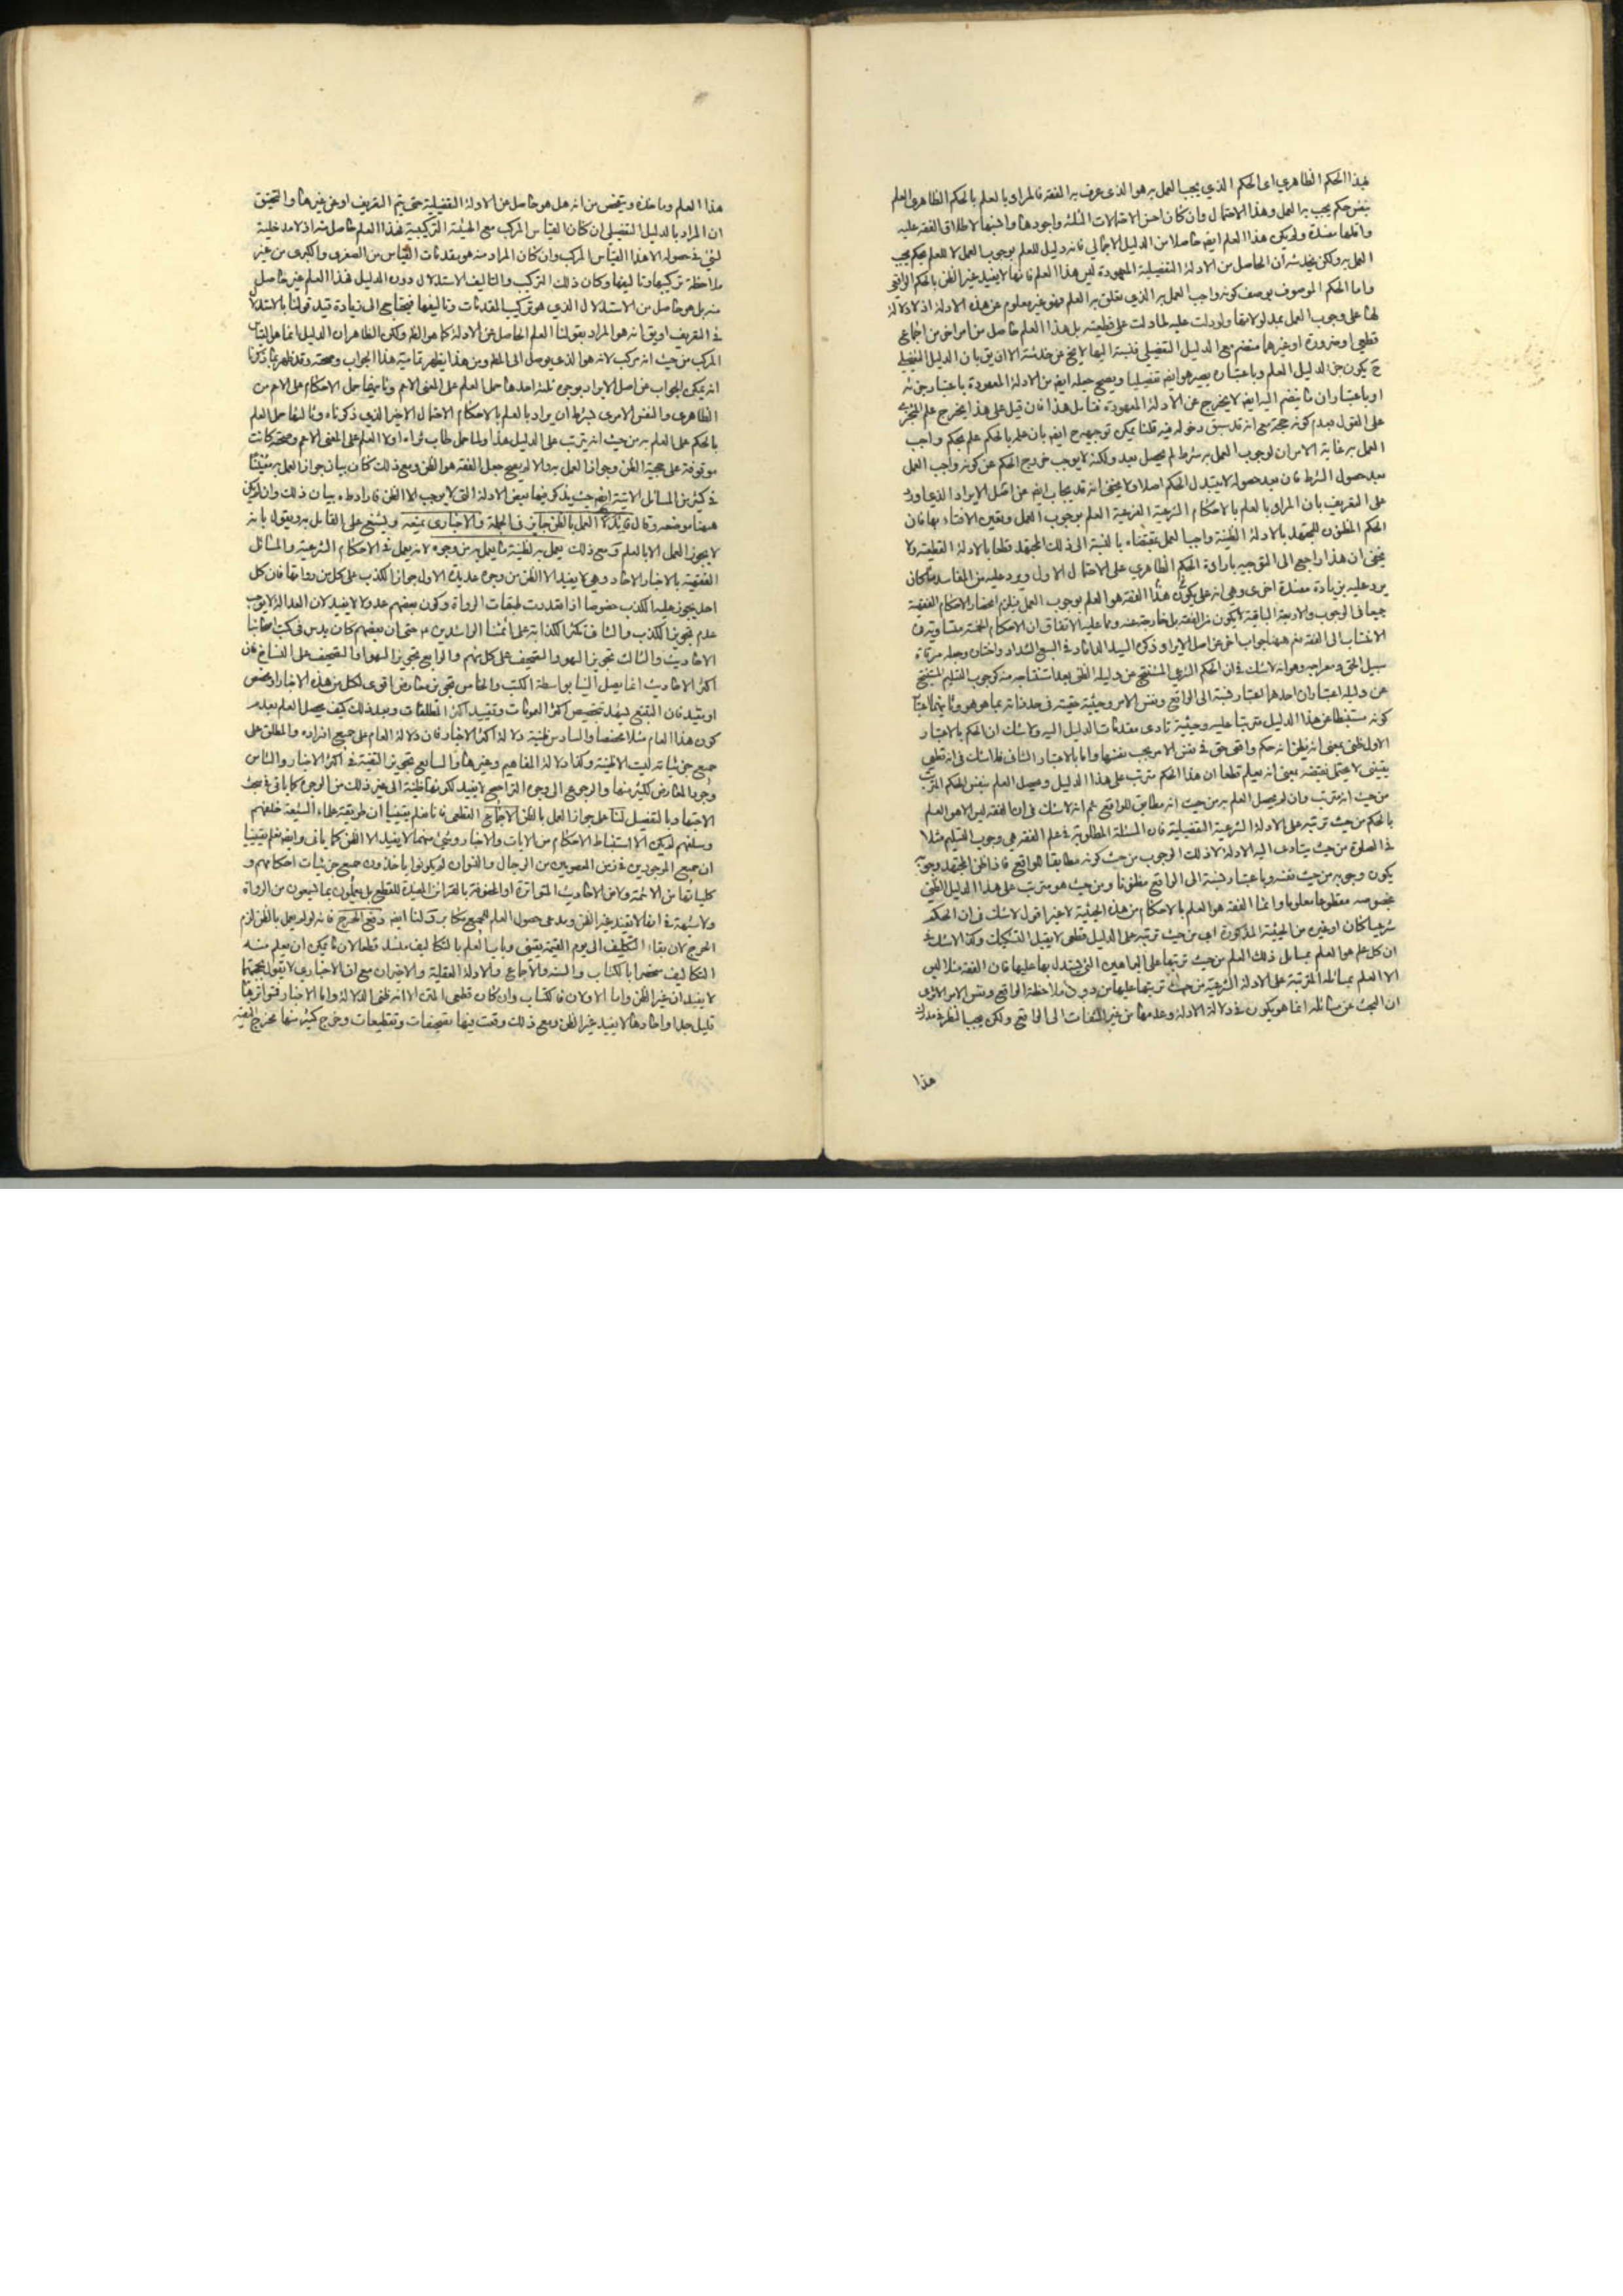 فهذا الحكم الظاهري اى الحكم الذي يجب العمل به هو الذى عرف به الفقه فالمراد بالعلم بالحكم الظاهرى العلم
بنفس حكم يجب به العمل وهذا الاحتمال وان كان احسن الاحتمالات الثلثة واجودها وانسبها لاطلاق الفقه عليه
واقلها مفسدة ولم يكن هذا العلم ايضا حاصلا من الدليل الاجمالي فانه دليل للعلم بوجوب العمل لا للعلم بحكم يجب
العمل به ولكن يخدشه ان الحاصل من الادلة التفصيلية المعهودة ليس هذا العلم فانها لا يفيد غير الظن بالحكم الواقعي
واما الحكم الموصوف بوصف كونه واجب العمل به الذي تعلق به العلم فهو غير معلوم عن هذه الادلة اذ لا دلالة
لها على وجوب العمل بمدلولاتها ولو دلت عليه لما دلت على قطعيته بل هذا العلم حاصل من امر اخر من اجماع
قطعي او ضرورة او غيرهما منضم مع الدليل التفصيلى فنسبته اليها لا يخ عن خدشة الا ان يق بان الدليل التفصيلى
ح يكون جزء لدليل العلم وباعتباره يصير هو ايضا تفصيليا ويصح جعله ايضا من الادلة المعهودة باعتبار جزئه
او باعتبار ان ما ينضم اليه ايضا لا يخرج عن الادلة المعهودة فتامل هذا فان قيل على هذا يخرج علم المتجزي
على القول بعدم كونه حجة مع انه قد سبق دخوله فيه قلنا يمكن توجيهه ح ايضا بان علمه بالحكم علم بحكم واجب
العمل به غاية الامر ان لوجوب العمل به شرط لم يحصل بعد ولكنه لا يوجب خروج الحكم عن كونه واجب العمل
بعد حصول الشرط فان بعد حصوله لا يتبدل الحكم اصلا ولا يخفى انه قد يجاب ايضا عن اصل الايراد الذي اورد
على التعريف بان المراد بالعلم بالاحكام الشرعية الفرعية العلم بوجوب العمل وتعين الافتاء بها فان
الحكم المظنون للمجتهد بالادلة الظنية واجب العمل بمقتضاه بالنسبة الى ذلك المجتهد قطعا بالادلة القطعية ولا
يخفى ان هذا راجع الى التوجيه بارادة الحكم الظاهري على الاحتمال الاول ويرد عليه من المفاسد ما كان
يرد عليه بزيادة مفسدة اخرى وهي انه على هذا يكون الفقه هو العلم بوجوب العمل فيلزم انحصار الاحكام الفقهية
جميعا في الوجوب والاربعة الباقية لا يكون من الفقه بل خارجة عنه وما عليه الاتفاق ان الاحكام الخمسة متساوية في
الانتساب الى الفقه نعم ههنا جواب اخر عن اصل الايراد ذكره السيد الداماد في السبع الشداد واختاره وجعله مرقاة
سبيل الحق ومعراجه وهو انه لا شك في ان الحكم الشرعي المستنتج عن دليله الظني بعد استنتاجه منه كوجوب التسليم المستنتج
عن دليله اعتباران احدهما اعتبار نسبته الى الواقع ونفس الامر وحيثية حقيته في حد ذاته بما هو هو وثانيهما اعتبار
كونه مستنبطا عن هذا الدليل مترتبا عليه وحيثية تادى مقدمات الدليل اليه ولا شك ان الحكم بالاعتبار
الاول ظني بمعنى انه يظن انه حكم واقعي حق في نفس الامر بحسب نفسها واما بالاعتبار الثاني فلا شك في انه قطعي
يقيني لا يحتمل نقيضه بمعنى انه يعلم قطعا ان هذا الحكم مترتب على هذا الدليل وحصل العلم بنفس الحكم المترتب
من حيث انه مترتب وان لم يحصل العلم به من حيث انه مطابق للواقع ثم انه لا شك في ان الفقه ليس الا هو العلم
بالحكم من حيث ترتبه على الادلة الشرعية التفصيلية فان المسئلة المطلوبة في علم الفقه هي وجوب التسليم مثلا
في الصلوة من حيث يتادى اليه الادلة لا ذلك الوجوب من حيث كونه مطابقا للواقع فاذا ظن المجتهد وجوبه
يكون وجوبه من حيث نفسه وباعتبار نسبته الى الواقع مظنونا ومن حيث هو مترتب على هذا الدليل الظني
بخصوصه مقطوعا معلوما وانما الفقه هو العلم بالاحكام من هذه الحيثية لا غير اقول لا شك في ان الحكم
شرعيا كان او غيره من الحيثية المذكورة اى من حيث ترتبه على الدليل قطعي لا يقبل التشكيك وكذا لا شك في
ان كل علم هو العلم بمسائل ذلك العلم من حيث ترتبها على البراهين التى يستدل بها عليها فان الفقه مثلا ليس
الا العلم بمسائله المترتبة على الادلة الشرعية من حيث ترتبها عليها من دون ملاحظة الواقع ونفس الامر الا ترى
ان البحث عن مسائله انما هو يكون في دلالة الادلة وعدمها من غير التفات الى الواقع ولكن يجب النظر في مدرك
هذا
هذا العلم وماخذه وتفحص من انه هل هو حاصل عن الادلة التفصيلية حتى يتم التعريف او عن غيرها والتحقيق
ان المراد بالدليل التفصيلى ان كان القياس المركب مع الهيئة التركيبية فهذا العلم حاصل منه اذ لا مدخلية
لشئ في حصوله الا هذا القياس المركب وان كان المراد منه هو مقدمات القياس من الصغرى والكبرى من غير
ملاحظة تركيبها وتاليفها وكان ذلك التركيب والتاليف الاستدلال دون الدليل فهذا العلم غير حاصل
منه بل هو حاصل من الاستدلال الذي هو تركيب المقدمات وتاليفها فيحتاج الى زيادة قيد قولنا بالاستدلال
في التعريف او يق انه هو المراد بقولنا العلم الحاصل عن الادلة كما هو الظ ولكن الظاهر ان الدليل انما هو القياس
المركب من حيث انه مركب لانه هو الذى يوصل الى المط ومن هذا يظهر تمامية هذا الجواب وصحته وقد ظهر بما ذكرنا
انه يمكن الجواب عن اصل الايراد بوجوه ثلثة احدها حمل العلم على المعنى الاعم وثانيها حمل الاحكام على الاعم من
الظاهرى والنفس الامرى بشرط ان يراد بالعلم بالاحكام الاحتمال الاخير الذي ذكرناه وثالثها حمل العلم
بالحكم على العلم به من حيث انه يترتب على الدليل هذا ولما حمل طاب ثراه اولا العلم على المعنى الاعم وصحته كانت
موقوفة على حجية الظن وجواز العمل به والا لم يصح جعل الفقه هو الظن ومع ذلك كان بيان جواز العمل به مفتقرا
في كثير من المسائل الاتية ايضا حيث يذكر فيها بعض الادلة التى لا يوجب الا الظن فاراد ط بيان ذلك وان لم يكن
ههنا موضعه وقال فائدة العمل بالظن جايز في الجملة والاخبارى يمنعه ويشنع على القايل به ويقول بانه
لا يجوز العمل الا بالعلم ومع ذلك يعمل به لظنية ما يعمل به من وجوه لانه يعمل في الاحكام الشرعية والمسائل
الفقهية بالاخبار الاحاد وهي لا يفيد الا الظن من وجوه عديدة الاول جواز الكذب على كل من رواتها فان كل
احد يجوز عليه الكذب خصوصا اذا تعددت طبقات الرواة وكون بعضهم عدولا لا يفيد لان العدالة لا يوجب
عدم تجويز الكذب والثانى تكثر الكذابة على ائمتنا الراشدين ع حتى ان بعضهم كان يدس في كتب اصحابنا
الاحاديث والثالث تجويز السهو والتصحيف على كل منهم والرابع تجويز السهو او التصحيف على النساخ فان
اكثر الاحاديث انما يصل الينا بواسطة الكتب والخامس تجويز معارض اقوى لكل من هذه الاخبار او مخصص
او مقيد فان التتبع يشهد تخصيص اكثر العمومات وتقييد اكثر المطلقات وبعد ذلك كيف يحصل العلم بعدم
كون هذا العام مثلا مخصصا والسادس ظنية دلالة اكثر الاخبار فان دلالة العام على جميع افراده والمطلق على
جميع جزئياته ليست الا ظنية وكذا دلالة المفاهيم وغيرها والسابع تجويز التقية في اكثر الاخبار والثامن
وجود المعارض لكثير منها والرجوع الى وجوه التراجيح لا يفيد لكونها ظنية الى غير ذلك من الوجوه كما ياتى في بحث
الاجتهاد بالتفصيل لنا على جواز العمل بالظن الاجماع القطعى فانا نعلم يقينا ان طريقة علماء الشيعة خلفهم
وسلفهم لم يكن الا استنباط الاحكام من الايات والاخبار وشئ منهما لا يفيد الا الظن كما ياتى وايضا نعلم يقينا
ان جميع الموجودين في زمن المعصومين من الرجال والنسوان لم يكونوا ياخذون جميع جزئيات احكامهم و
كلياتها من الائمة ولا من الاحاديث المتواترة او المحفوفة بالقرائن المفيدة للقطع بل يعملون بما يسمعون من الرواة
ولا شبهة في انها لا يفيد غير الظن ومدعى حصول العلم للجميع مكابر ولنا ايضا دفع الحرج فانه لو لم يعمل بالظن لزم
الحرج لان بقاء التكليف الى يوم القيمة يقيني وباب العلم بالتكاليف منسد قطعا لان ما يمكن ان يعلم منه
التكاليف منحصر بالكتاب والسنة والاجماع والادلة العقلية والاخيران مع ان الاخبارى لا يقول بحجيتهما
لا يفيدان غير الظن واما الاولان فالكتاب وان كان قطعى المتن الا انه ظنى الدلالة واما الاخبار فمتواترها
قليل جدا واحادها لا يفيد غير الظن ومع ذلك وقعت فيها تصحيفات وتقطيعات وخرج كثير منها مخرج التقية